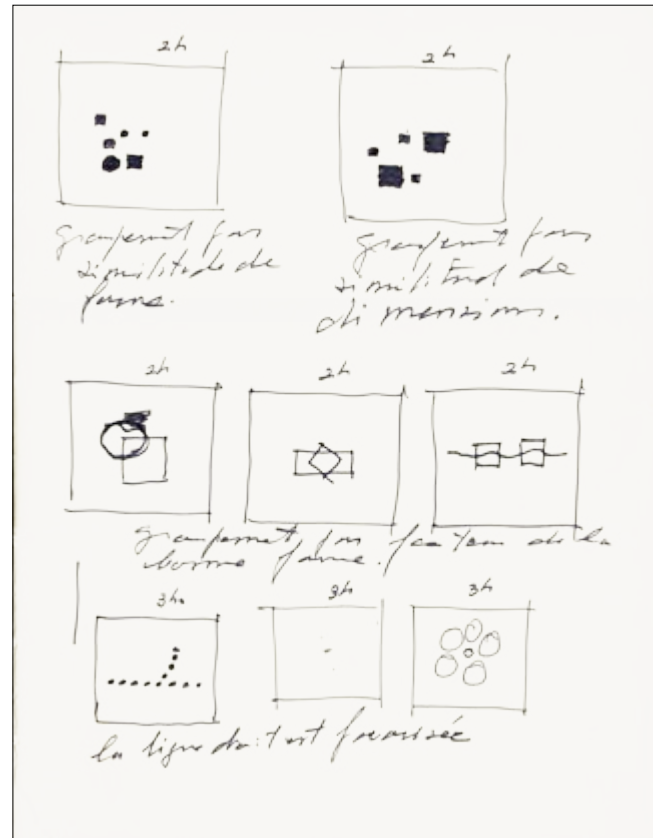 2h
2h
groupement par
similitude de
forme.
groupement par
similitud de
dimensions.
2h
2h
2h
groupement par facteur de la
bonne forme.
3h
3h
3h
la ligne droit est favorisée